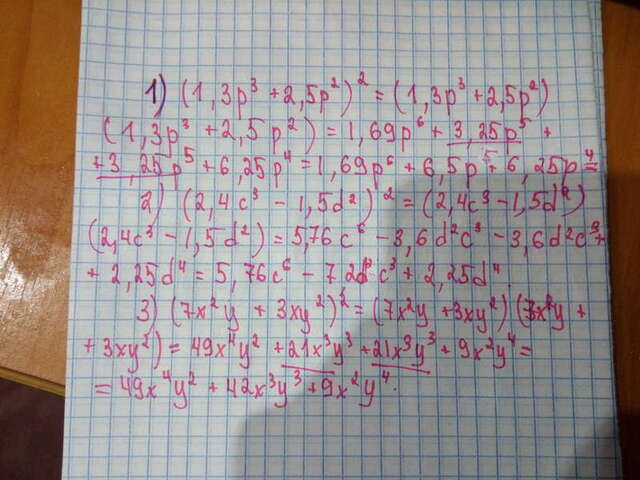 1) (1,3p³ + 2,5p²)² = (1,3p³ + 2,5p²)
(1,3p³ + 2,5p²) = 1,69p⁶ + 3,25p⁵ +
+3,25p⁵ + 6,25p⁴ = 1,69p⁶ + 6,5p⁵ + 6,25p⁴ =
2) (2,4c³ - 1,5d²)² = (2,4c³ - 1,5d²)
(2,4c³ - 1,5d²) = 5,76c⁶ - 3,6d²c³ - 3,6d²c³ +
+ 2,25d⁴ = 5,76c⁶ - 7,2d²c³ + 2,25d⁴.
3) (7x²y + 3xy²)² = (7x²y + 3xy²)(7x²y +
+ 3xy²) = 49x⁴y² + 21x³y³ + 21x³y³ + 9x²y⁴ =
= 49x⁴y² + 42x³y³ + 9x²y⁴.